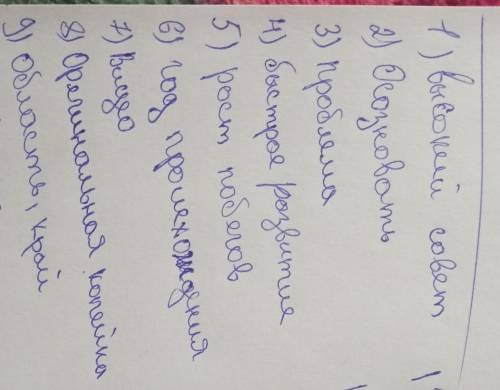 1) высокий совет
2) Осозновать
3) Проблема
4) быстрое развитие
5) рост побегов
6) год происхождения
7) Видео
8) Оригинальная копейка
9) Область, край